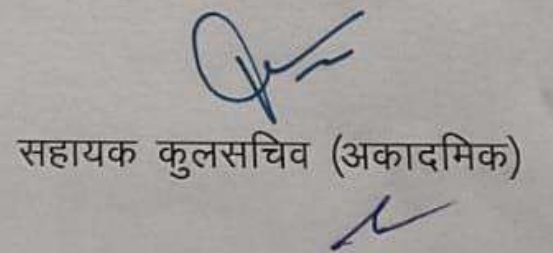 सहायक कुलसचिव (अकादमिक)